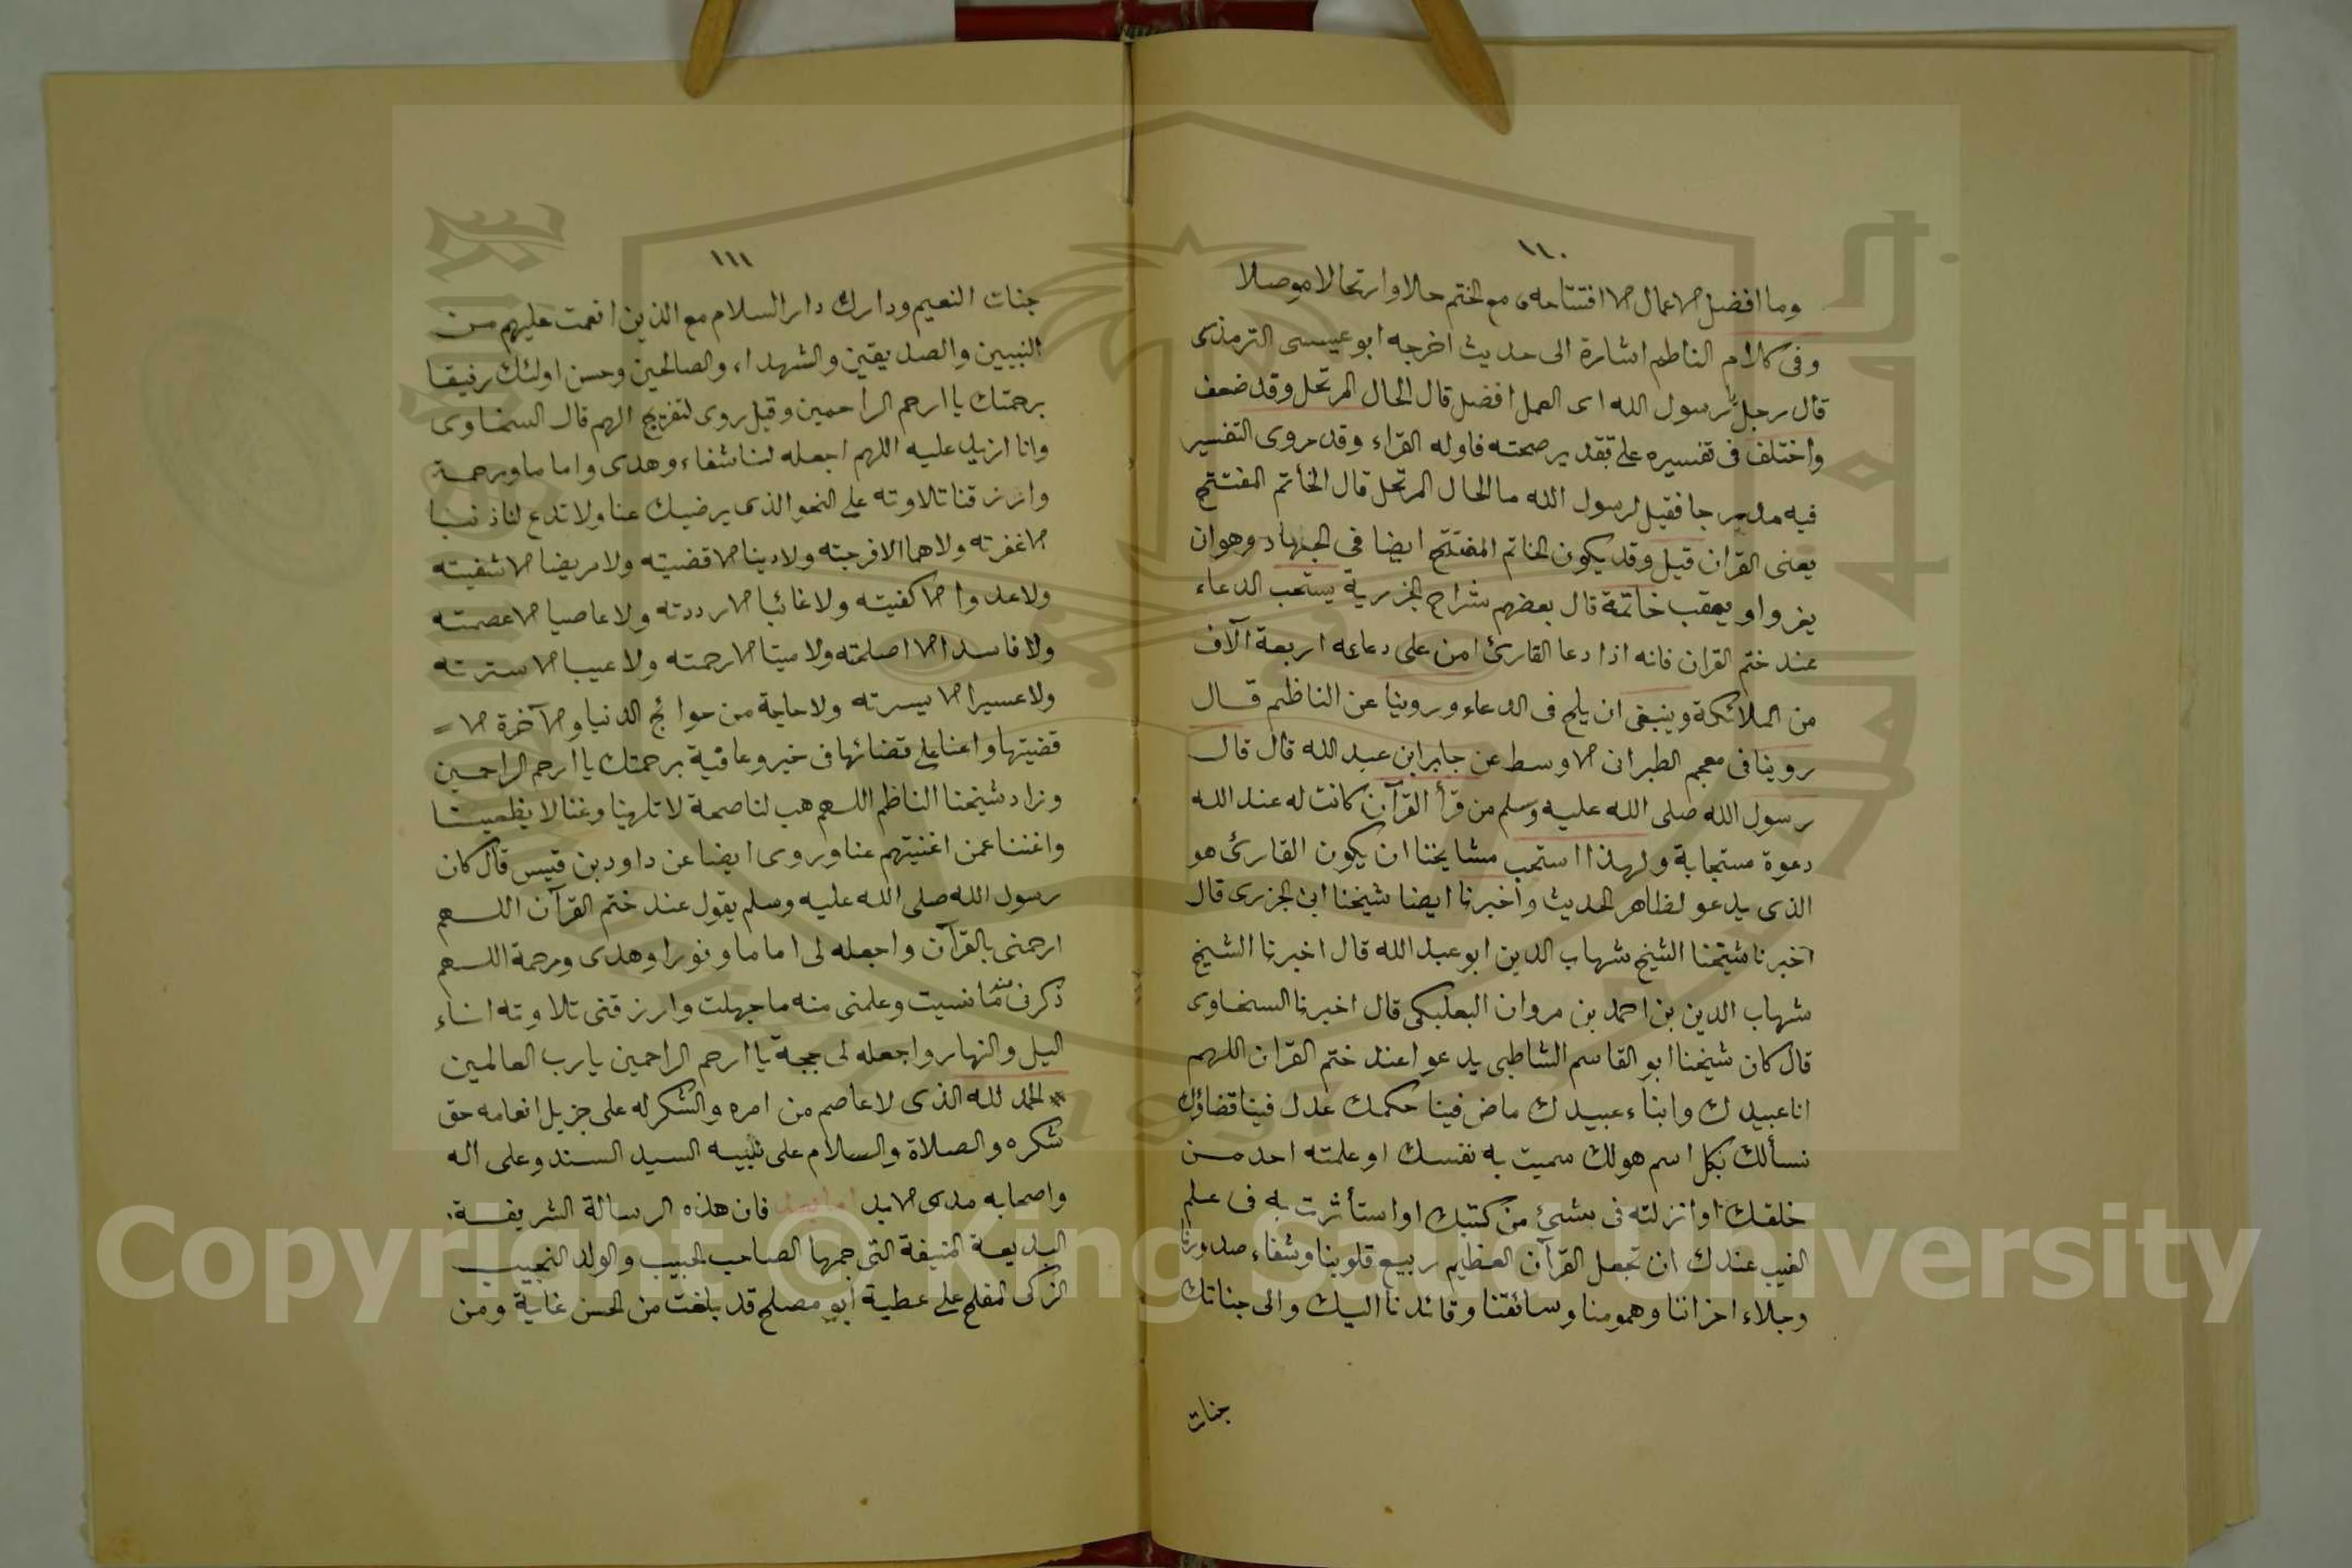 ١١٠
وما افضل الاعمال الا افتتاحه مع الختم حالا وارتحالا موصلا
وفى كلام الناظم اشارة الى حديث اخرجه ابو عيسى الترمذى
قال رجل لرسول الله اى العمل افضل قال الحال المرتحل وقد ضعف
واختلف فى تفسيره على تقدير صحته فاوله القراء وقد مروى التفسير
فيه مدرجا فقيل لرسول الله ما الحال المرتحل قال الخاتم المفتتح
يعنى القران قيل وقد يكون الخاتم المفتتح ايضا فى الجهاد وهو ان
يغزوا ويعقب خاتمة قال بعضهم شراح الجزرية يستحب الدعاء
عند ختم القران فانه اذا دعا القارئ امن على دعاءه اربعة آلاف
من الملائكة وينبغى ان يلح فى الدعاء وروينا عن الناظم قال
روينا فى معجم الطبرانى الاوسط عن جابر ابن عبد الله قال قال
رسول الله صلى الله عليه وسلم من قرأ القرآن كانت له عند الله
دعوة مستجابة ولهذا استحب مشايخنا ان يكون القارئ هو
الذى يدعو لظاهر الحديث واخبرنا ايضا شيخنا ابن الجزرى قال
اخبرنا شيخنا الشيخ شهاب الدين ابو عبد الله قال اخبرنا الشيخ
شهاب الدين بن احمد بن مروان البعلبكى قال اخبرنا السخاوى
قال كان شيخنا ابو القاسم الشاطبى يدعوا عند ختم القران اللهم
انا عبيدك وابناء عبيدك ماض فينا حكمك عدل فينا قضاؤك
نسألك بكل اسم هولك سميت به نفسك او علمته احد من
خلقك او انزلته فى شئ من كتبك او استأثرت به فى علم
الغيب عندك ان تجعل القرآن العظيم ربيع قلوبنا وشفاء صدورنا
وجلاء احزاننا وهمومنا وسائقنا وقائدنا اليك والى جناتك
جنات
١١١
جنات النعيم ودارك دار السلام مع الذين انعمت عليهم من
النبيين والصديقين والشهداء والصالحين وحسن اولئك رفيقا
برحمتك يا ارحم الراحمين وقيل روى لتفريج الهم قال السخاوى
وانا ازيد عليه اللهم اجعله لنا شفاء وهدى واماما ورحمة
وارزقنا تلاوته على النحو الذى يرضيك عنا ولا تدع لنا ذنبا
الا غفرته ولا هما الا فرجته ولا دينا الا قضيته ولا مريضا الا شفيته
ولا عدوا الا كفيته ولا غائبا الا رددته ولا عاصيا الا عصمته
ولا فاسدا الا اصلحته ولا ميتا الا رحمته ولا عيبا الا سترته
ولا عسيرا الا يسرته ولا حاجة من حوائج الدنيا والآخرة الا =
قضيتها واعنا على قضائها فى خير وعافية برحمتك يا ارحم الراحمين
وزاد شيخنا الناظم اللهم هب لنا صحة لا تلهينا وغنا لا يطغينا
واغننا عمن اغنيتهم عنا وروى ايضا عن داود بن قيس قال كان
رسول الله صلى الله عليه وسلم يقول عند ختم القرآن اللهم
ارحمنى بالقرآن واجعله لى اماما ونورا وهدى ورحمة اللهم
ذكرنى منه ما نسيت وعلمنى منه ما جهلت وارزقنى تلاوته اناء
اليل والنهار واجعله لى حجة يا ارحم الراحمين يارب العالمين
* الحمد لله الذى لا عاصم من امره والشكر له على جزيل انعامه حق
شكره والصلاة والسلام على نبيه السيد السند وعلى اله
واصحابه مدى الابد اما بعد فان هذه الرسالة الشريفة
البديعة المنيفة التى جمعها الصاحب الحبيب والولد النجيب
الزكى المفلح على عطية ابو مصلح قد بلغت من الحسن غاية ومن
Copyright © King Saud University
1957